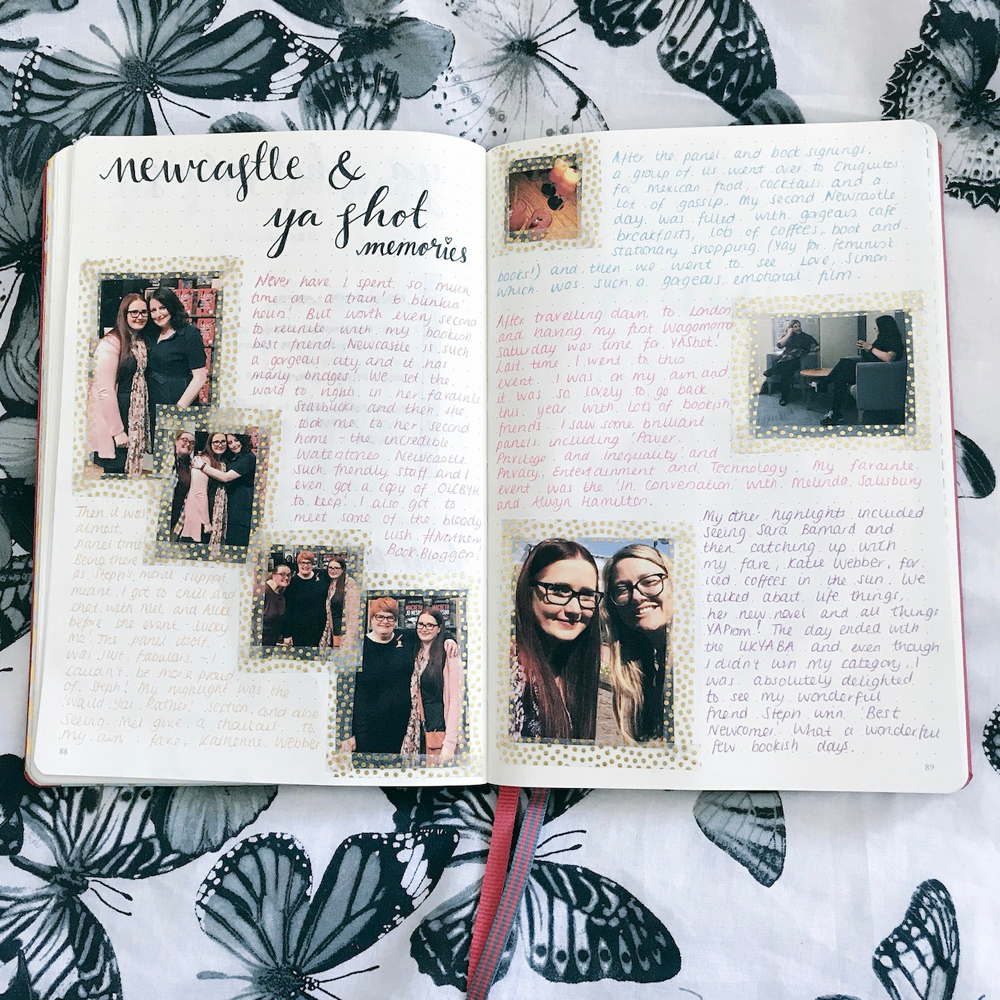 newcastle &
ya shot
memories
Never have I spent so much
time on a train! 6 blinkin'
hours! But worth every second
to reunite with my bookish
best friend. Newcastle is such
a gorgeous city and it has
many bridges! We set the
world to rights in her favourite
Starbucks and then she
took me to her second
home - the incredible
Waterstones Newcastle.
Such friendly staff and I
even got a copy of OLCBYH
to keep! I also got to
meet some of the bloody
lush #Northern
Book Bloggers!
Then it was
almost
panel time
Being there
as Steph's moral support
meant I got to chill and
chat with Mel and Alice
before the event - lucky
me! The panel itself
was just fabulous - I
couldn't be more proud
of Steph! My highlight was the
'Would You Rather' section and also
seeing Mel give a shoutout to
my own fave, Katherine Webber
88
After the panel and book signings,
a group of us went over to Chiquitos
for mexican food, cocktails and a
lot of gossip. My second Newcastle
day was filled with gorgeous café
breakfasts, lots of coffees, book and
stationary shopping (Yay for feminist
books!) and then we went to see Love, Simon
which was such a gorgeous emotional film.
After travelling down to London
and having my first Wagamama
Saturday was time for YAShot!
Last time I went to this
event I was on my own and
it was so lovely to go back
this year with lots of bookish
friends. I saw some brilliant
panels including 'Power
Privilege and Inequality' and
Privacy, Entertainment and Technology. My favourite
event was the 'In Conversation' with Melinda Salisbury
and Alwyn Hamilton.
My other highlights included
seeing Sara Barnard and
then catching up with
my fave, Katie Webber, for
iced coffees in the sun. We
talked about life things,
her new novel and all things
YAProm! The day ended with
the UKYABA and even though
I didn't win my category, I
was absolutely delighted
to see my wonderful
friend Steph win 'Best
Newcomer'. What a wonderful
few bookish days.
89